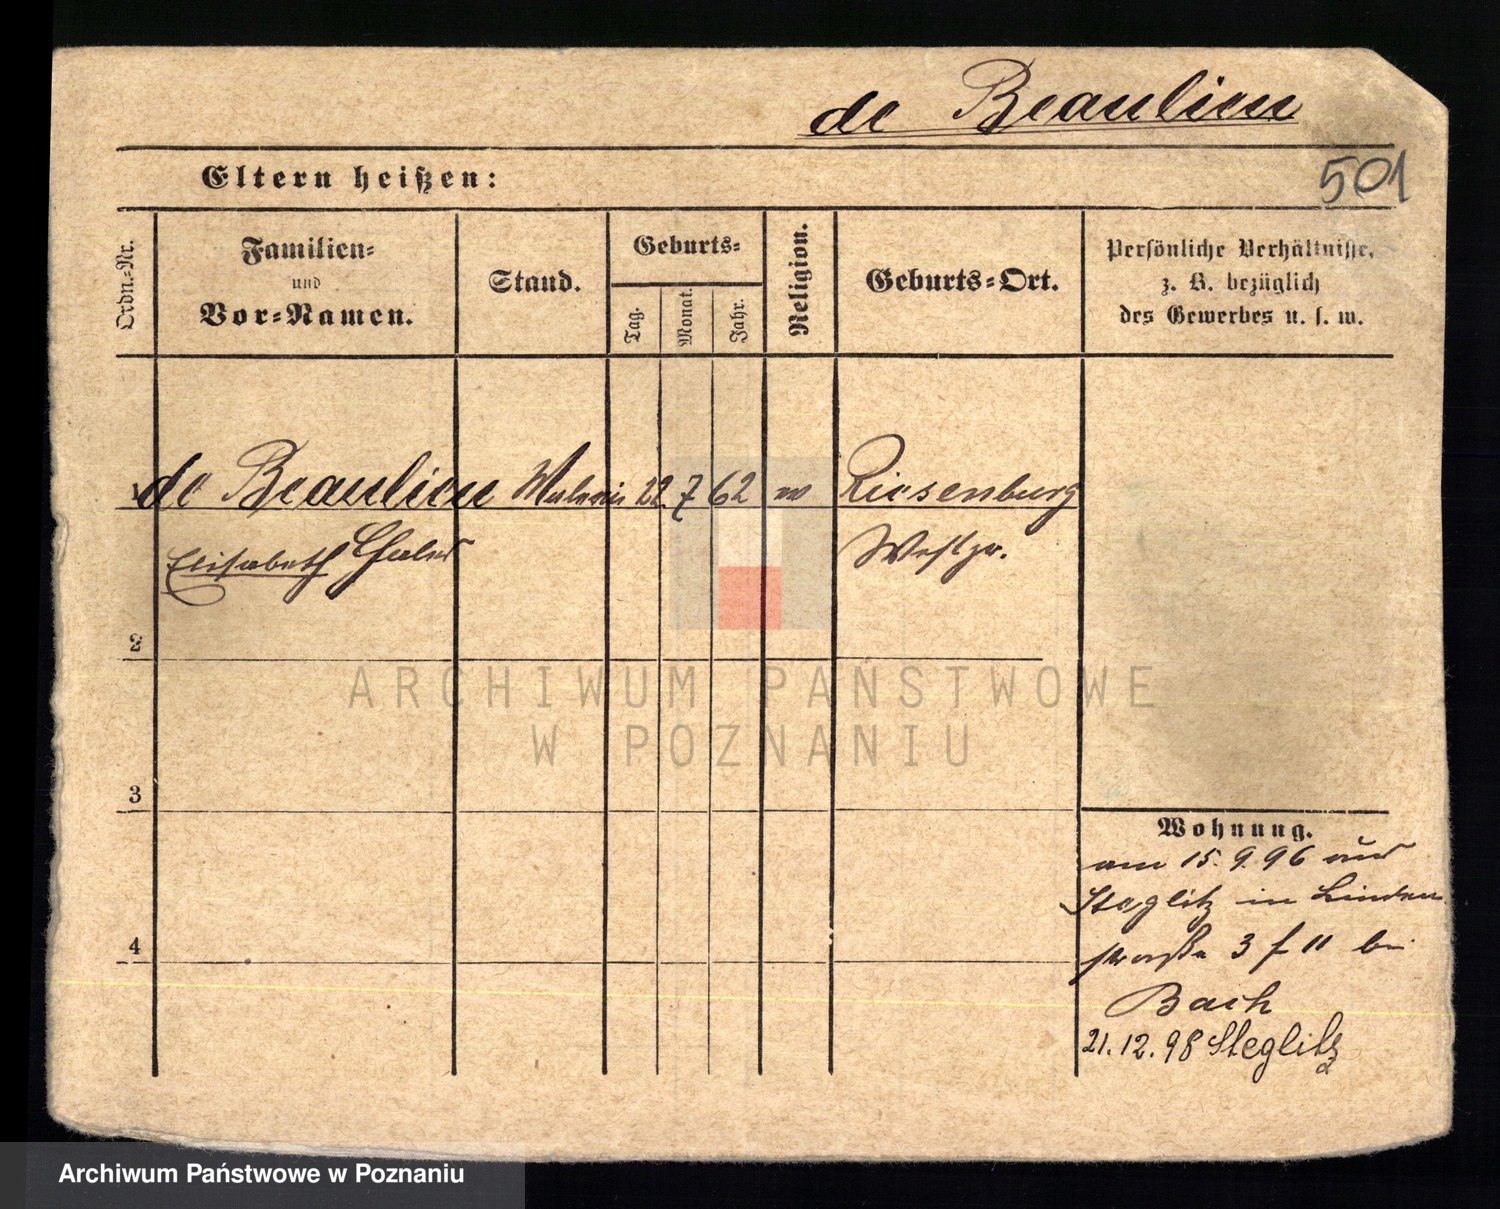 de Beaulieu
501
Eltern heißen:
Ordn.-Nr.
Familien-
und
Vor-Namen.
Stand.
Geburts-
Tag.
Monat.
Jahr.
Religion.
Geburts-Ort.
Persönliche Verhältnisse,
z. B. bezüglich
des Gewerbes u. s. w.
1 de Beaulieu Malerin 22. 7 62 Riesenburg
Elisabeth Westpr.
2
3
4
ARCHIWUM PAŃSTWOWE
W POZNANIU
Wohnung.
am 15. 9. 96 aus
Steglitz in Linden
straße 3 f 11 bei
Bach
21. 12. 98 Steglitz
Archiwum Państwowe w Poznaniu